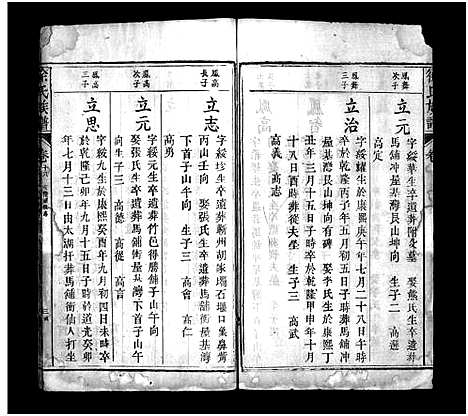 徐氏族譜
鳳舞
次子
立元
字綏華生卒遺葬附父墓 娶熊氏生卒遺葬
馬舖冲屋基灣艮山坤向 生子二
高定
鳳舞
三子
立治
字綏耀生於康熙庚午年七月二十八日午時
卒於乾隆壬子年五月四日子時葬馬舖冲
屋基灣艮山坤向有碑 娶李氏生於康熙丁
丑年三月十五日子時卒於乾隆甲申年十月
十八日酉時葬從夫塋 生子三 高武
高義 高志
鳳高
長子
立志
字綏珍生卒遺葬蘄州胡家塆石堰口巢鼻嘴
丙山壬向 娶張氏生卒遺葬馬舖街屋基灣
子山午向 生子三 高會 高仁
高勇
鳳高
次子
立元
字綏元生卒遺葬竹邑得勝舖子山午向
娶張氏生卒遺葬馬舖街屋基灣下首子山午
向生子三 高德 高從 高言
鳳高
三子
立思
字綏先生於康熙癸酉年九月初四日子時卒
於乾隆己卯年九月十五日子時於道光癸卯
年七月十三日由太湖扦葬馬舖衝仙人打坐
徐氏族譜